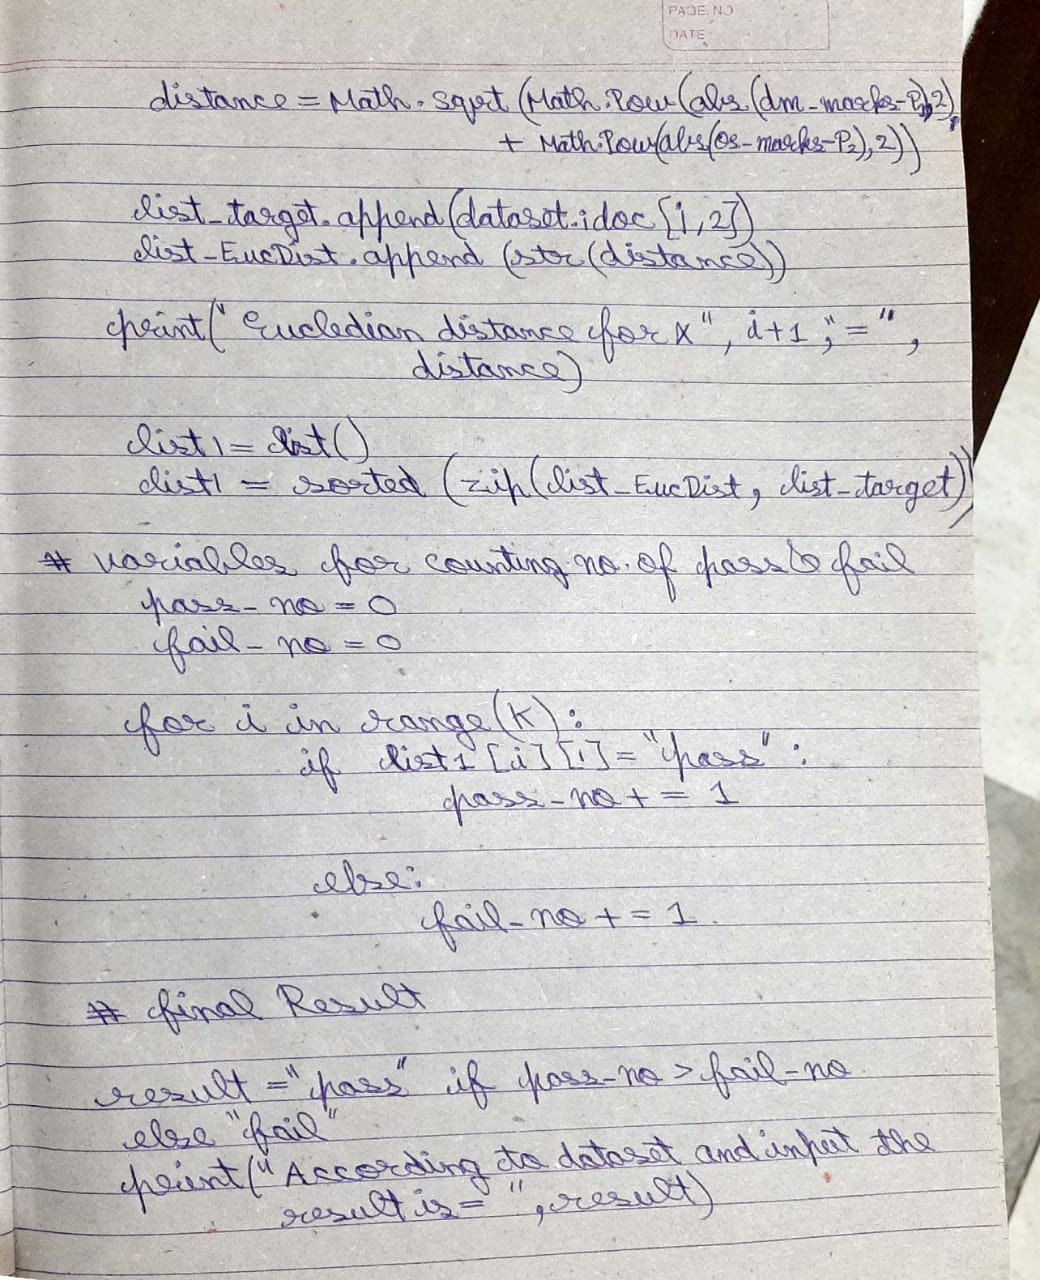 PAGE NO
DATE
distance = Math.sqrt (Math.Pow(abs(dm-marks-P1),2)
+ Math.Pow(abs(os-marks-P2),2))
list_target.append(dataset.idoc[i,2])
list_EucDist.append (str(distance))
print(" Eucledian distance for x", i+1, "=",
distance)
list1 = list()
list1 = sorted (zip(list_EucDist, list_target))
# variables for counting no. of pass & fail
pass-no = 0
fail-no = 0
for i in range(K):
if list1[i][1]="pass":
pass-no += 1
else:
fail-no += 1.
# final Result
result = "pass" if pass-no > fail-no
else "fail"
print("According to dataset and input the
result is = ", result)